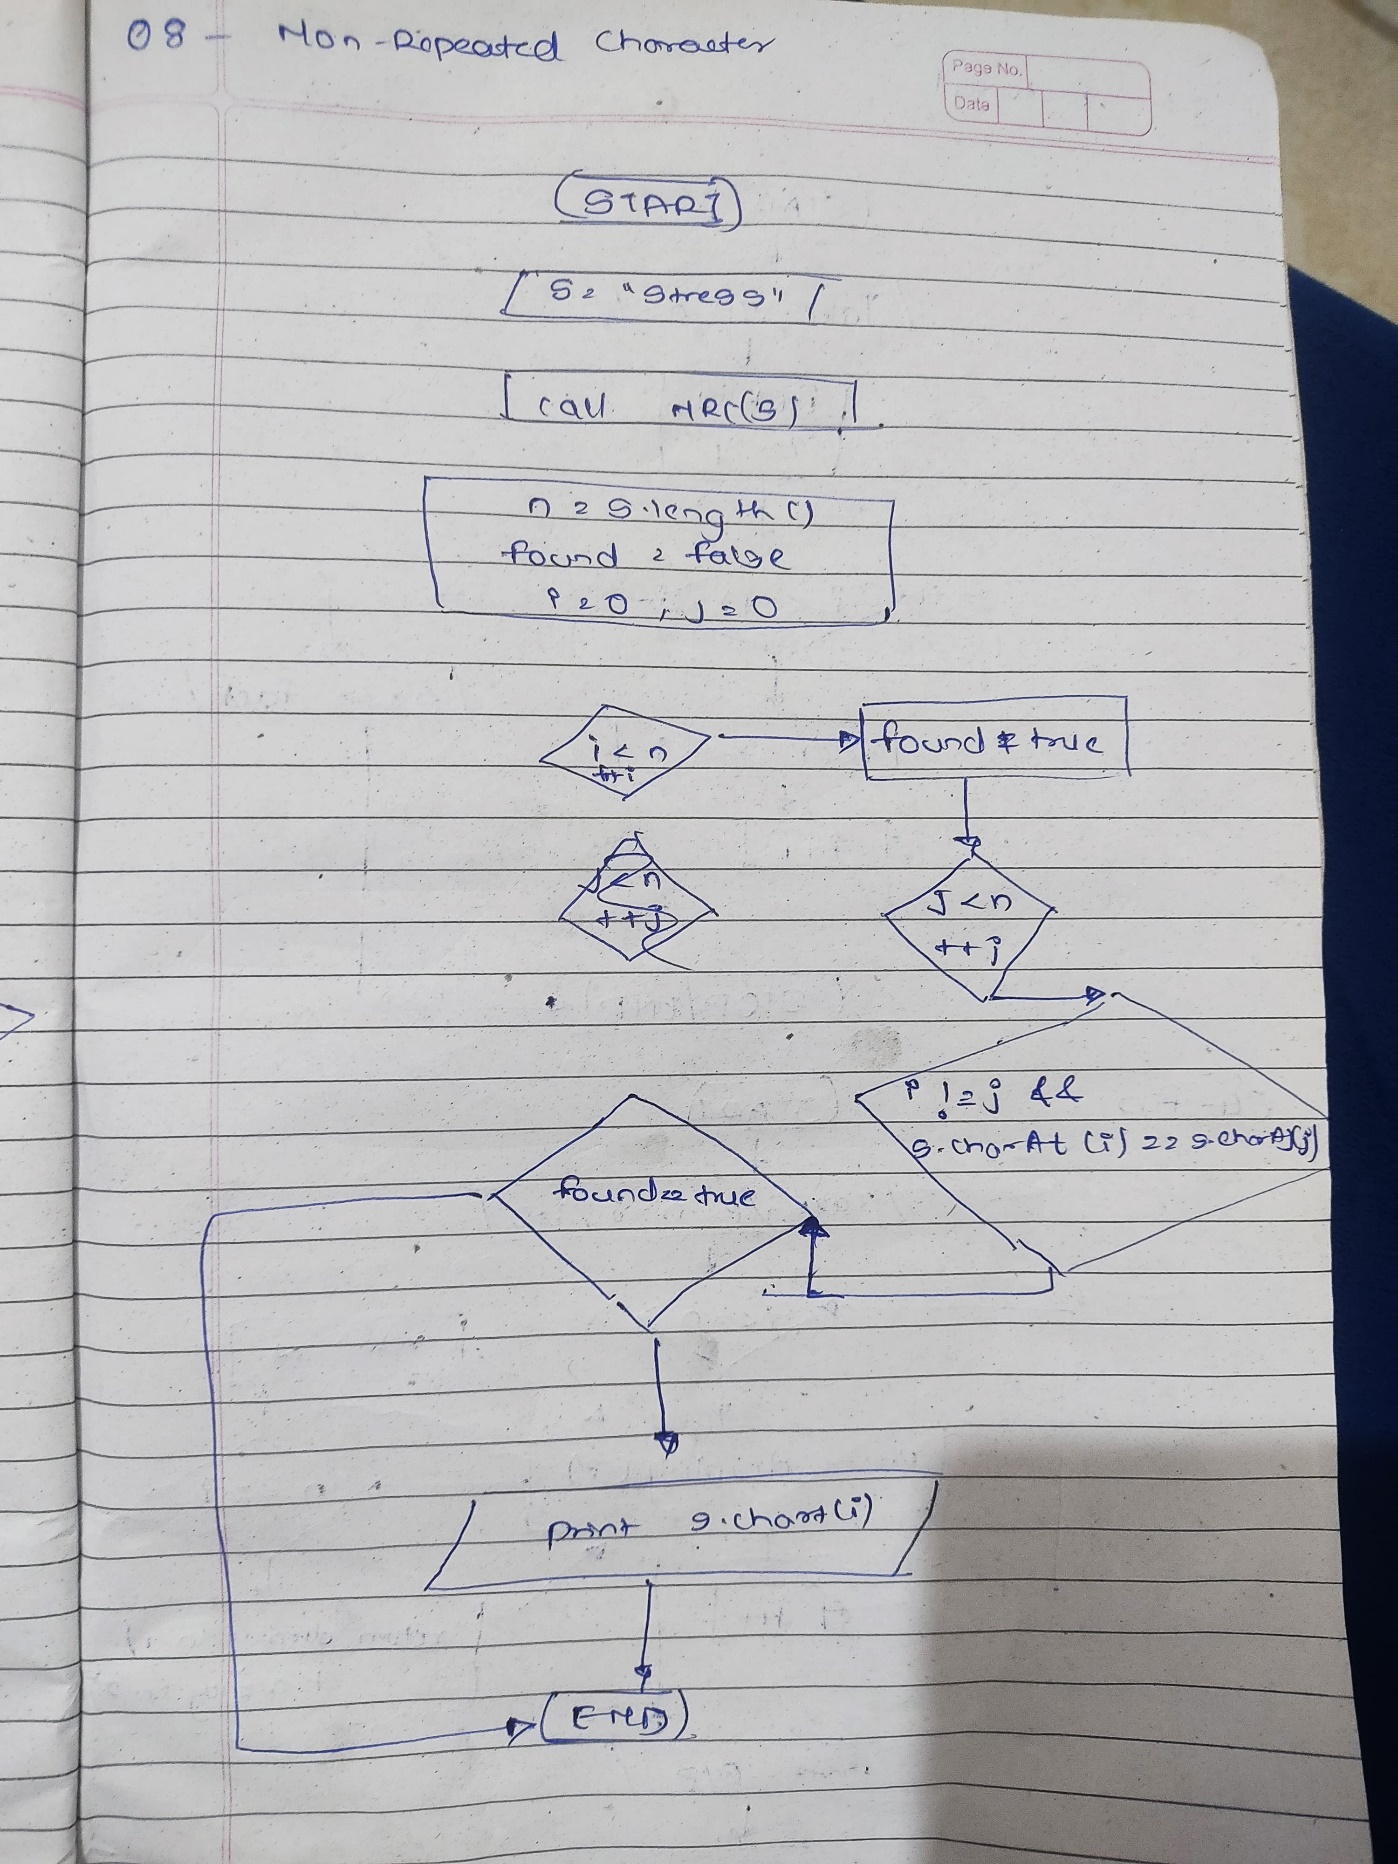 08 - Non-Repeated Character
Page No.
Date
START
S = "Stress"
call NRC(S)
n = s.length()
found = false
i = 0 ; j = 0
i < n
++i
found = true
j < n
++j
j < n
++j
i != j &&
s.charAt (i) == s.charAt(j)
found == true
print s.chart(i)
END